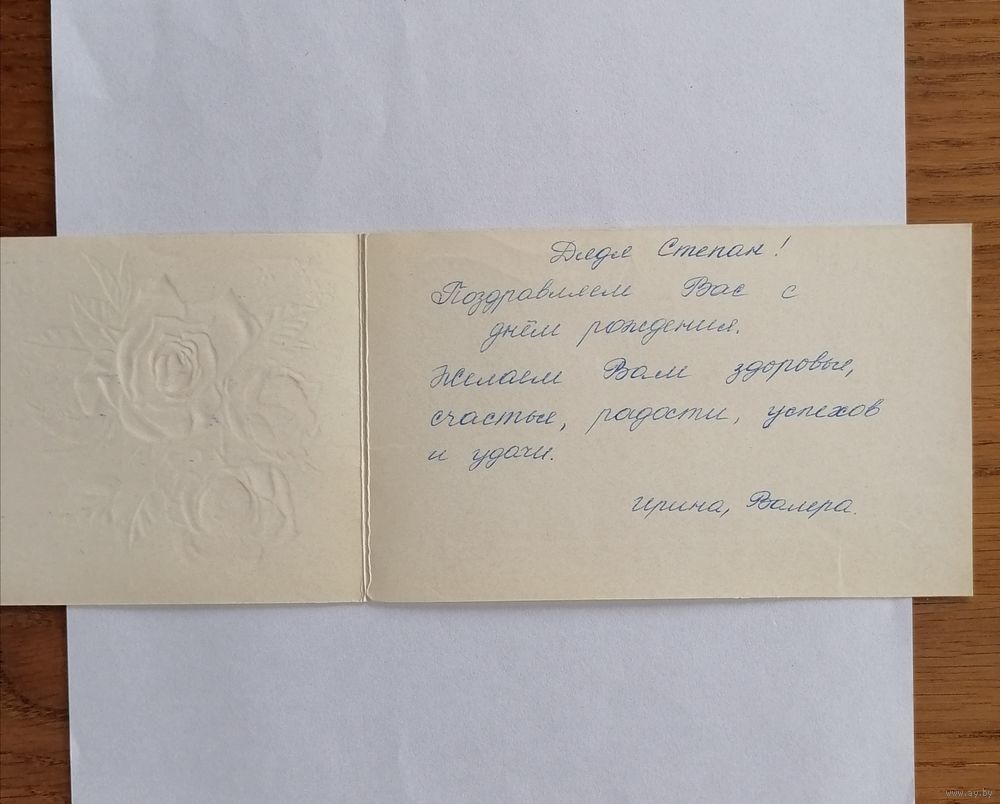 Дядя Степан!
Поздравляем Вас с
днём рождения.
Желаем Вам здоровья,
счастья, радости, успехов
и удачи.
Ирина, Валера.
www.ay.by